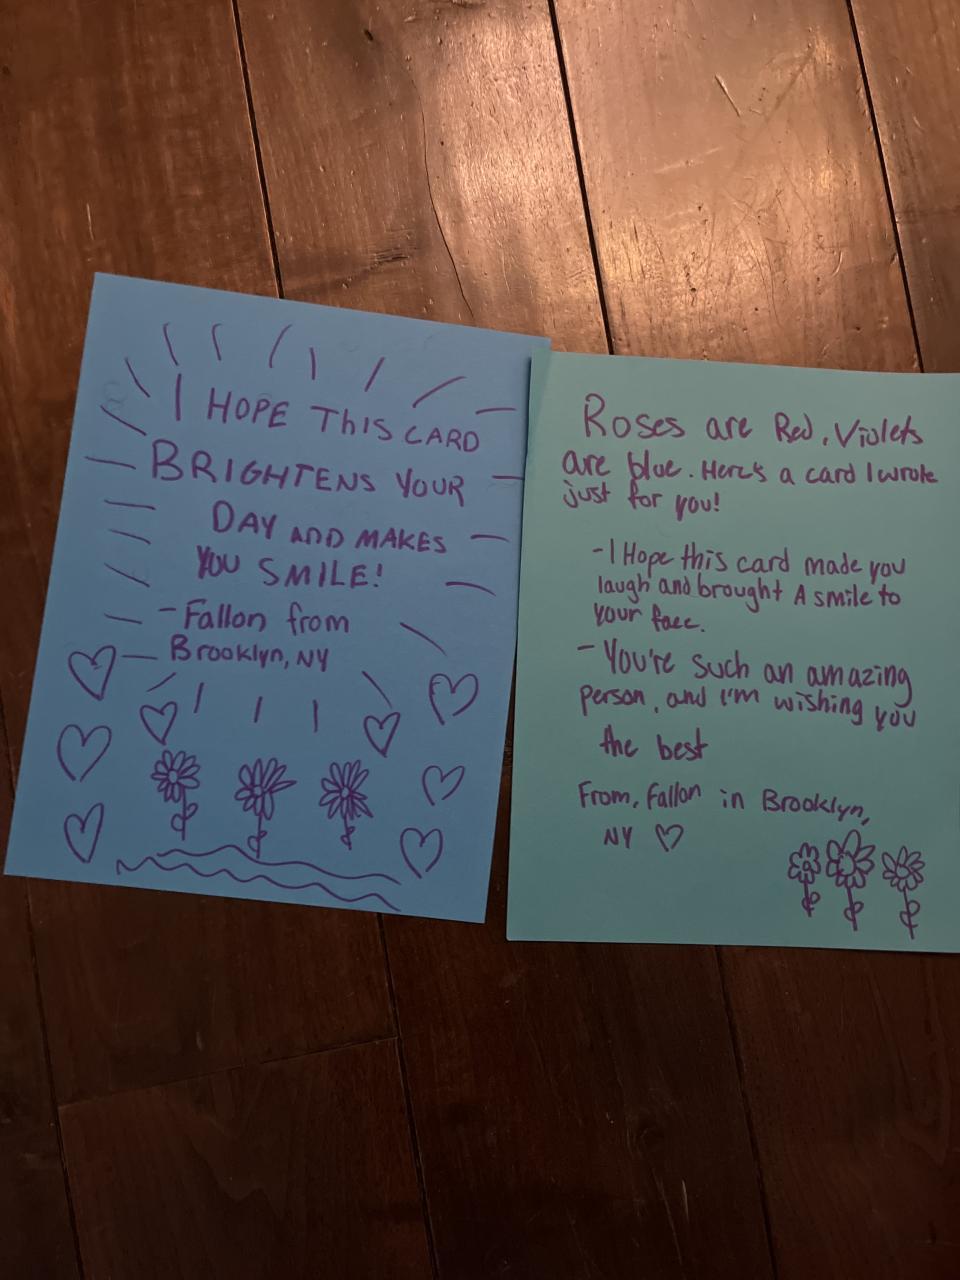 I HOPE THiS CARD
BRIGHTENS YOUR
DAY AND MAKES
YOU SMILE!
-Fallon from
Brooklyn, NY
Roses are Red, Violets
are blue. Here's a card I wrote
just for you!
-I Hope this card made you
laugh and brought A smile to
your face.
-You're such an amazing
person, and I'm wishing you
the best
From, Fallon in Brooklyn,
NY ♡